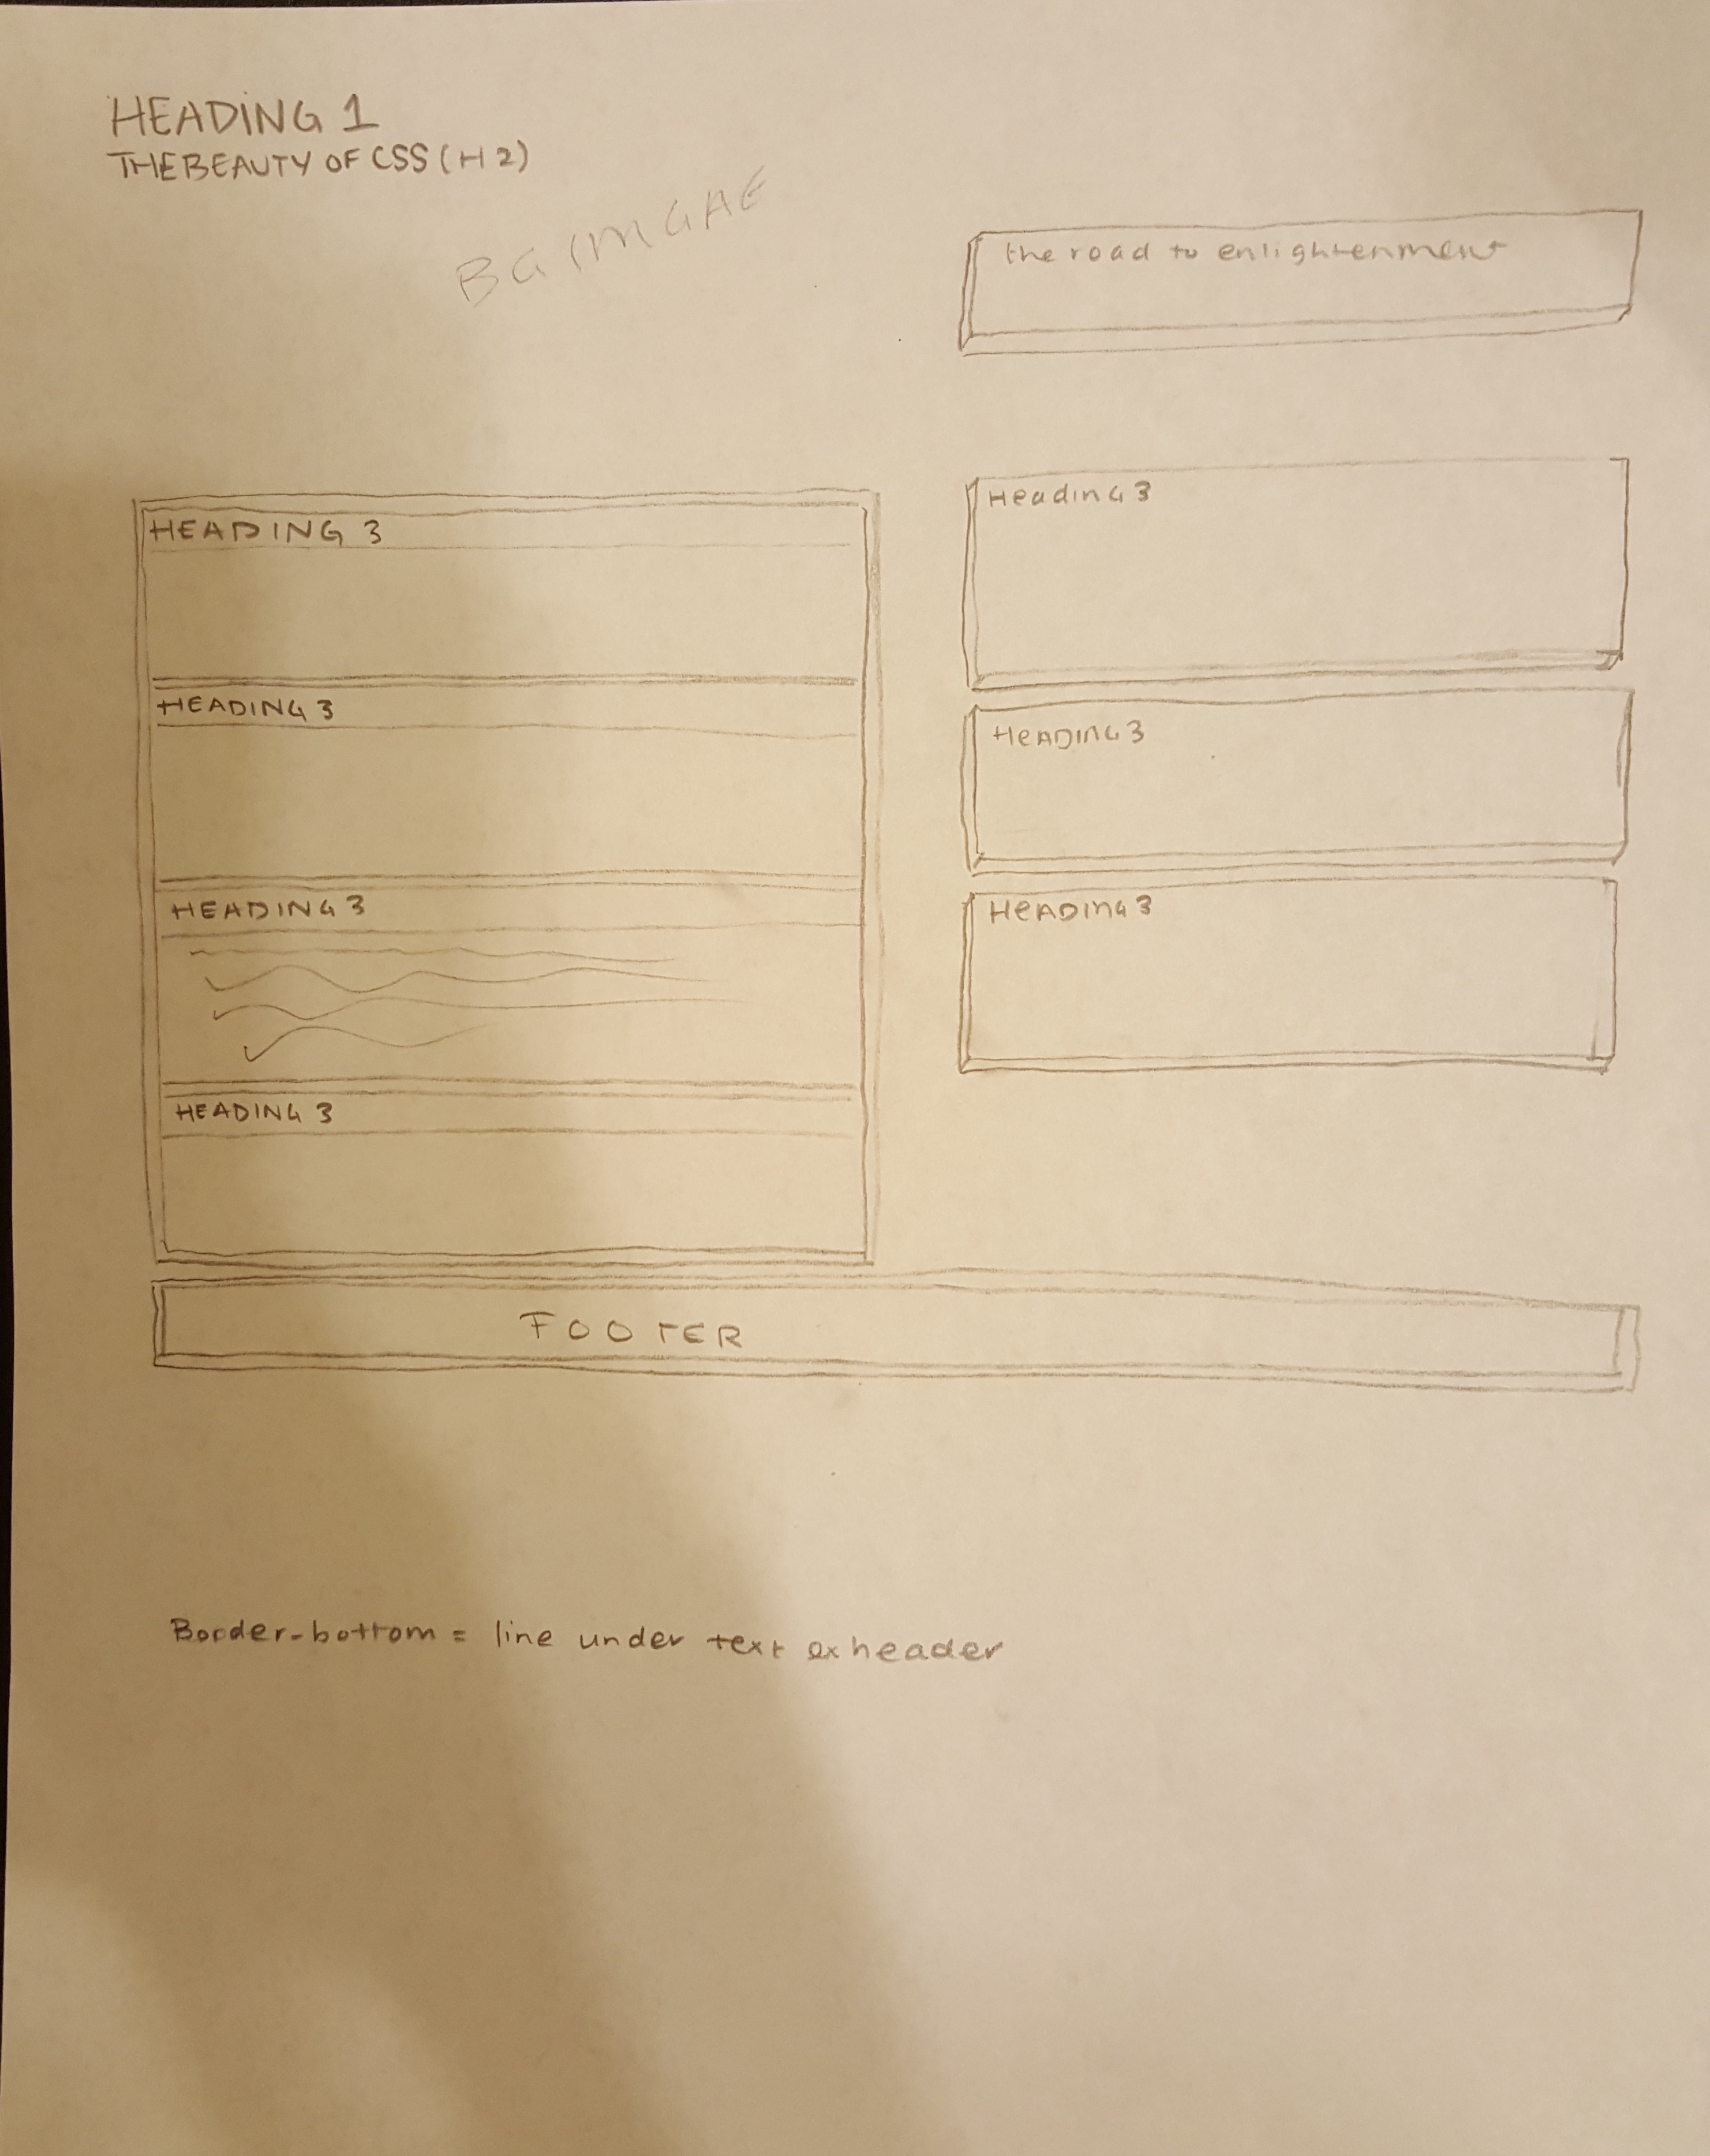 HEADING 1
THE BEAUTY OF CSS (H2)
BG IMGAE
the road to enlightenment
HEADING 3
HEADING 3
HEADING 3
HEADING 3
Heading 3
HEADING 3
HEADING 3
FOOTER
Border-bottom = line under text ex header